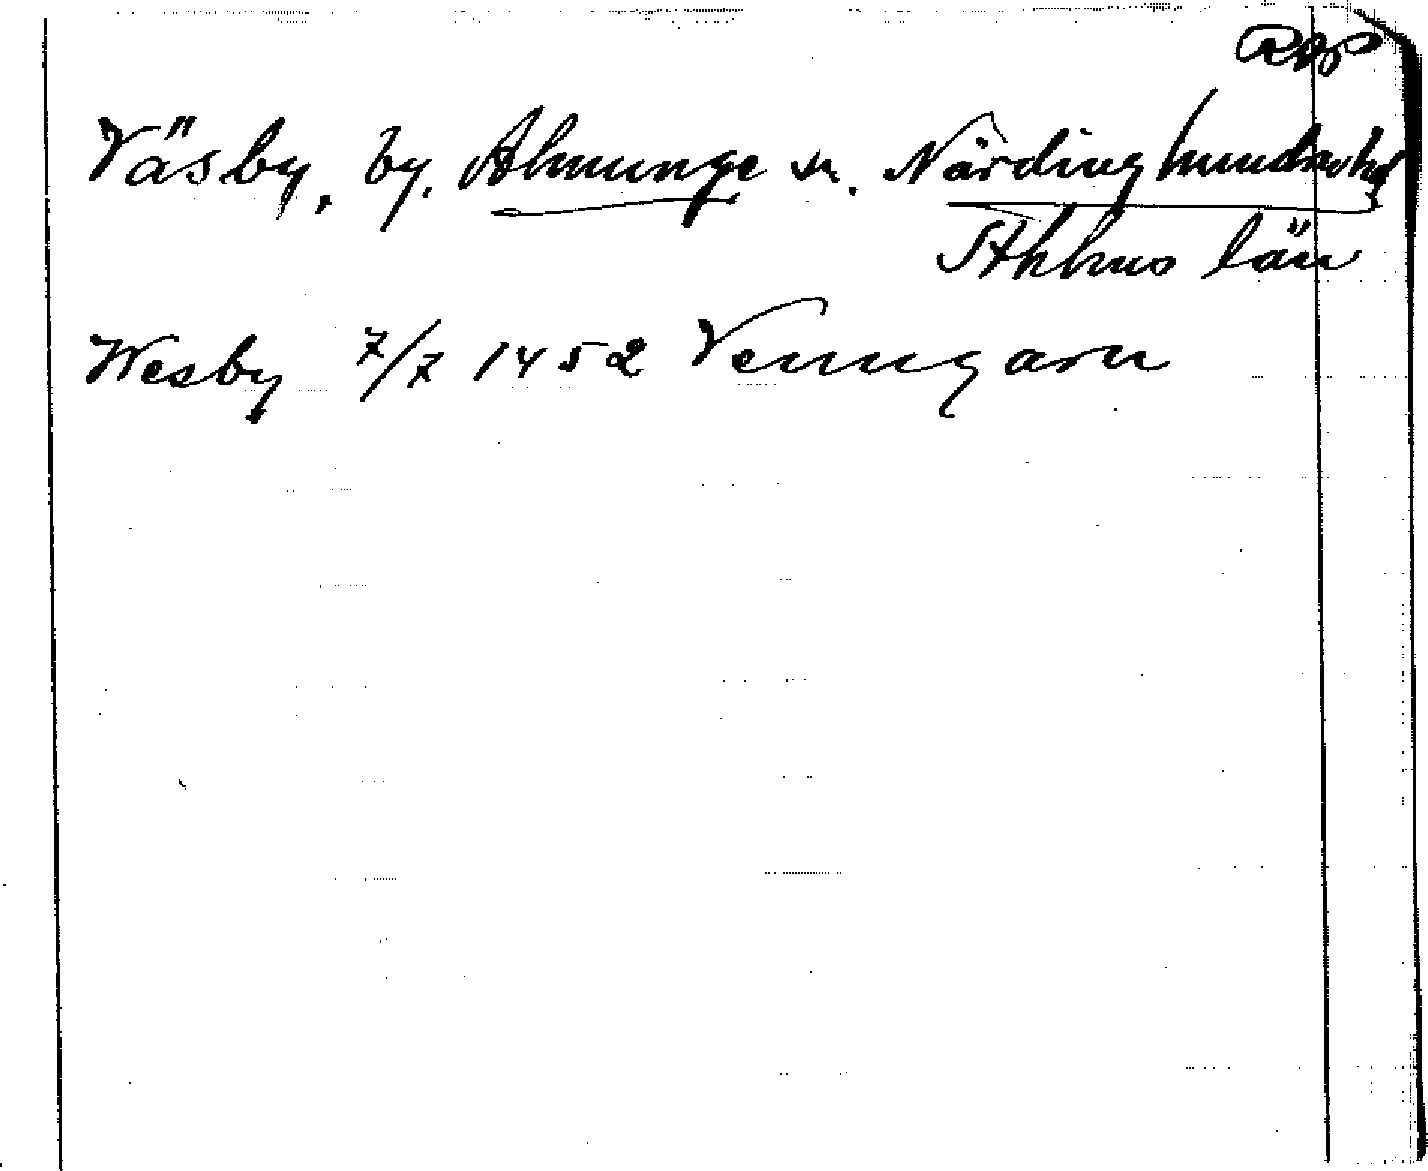 RAP
Väsby, by. Almunge sn. Närdinghundra hd
Sthlms län
Wesby 7/7 1452 Venngarn